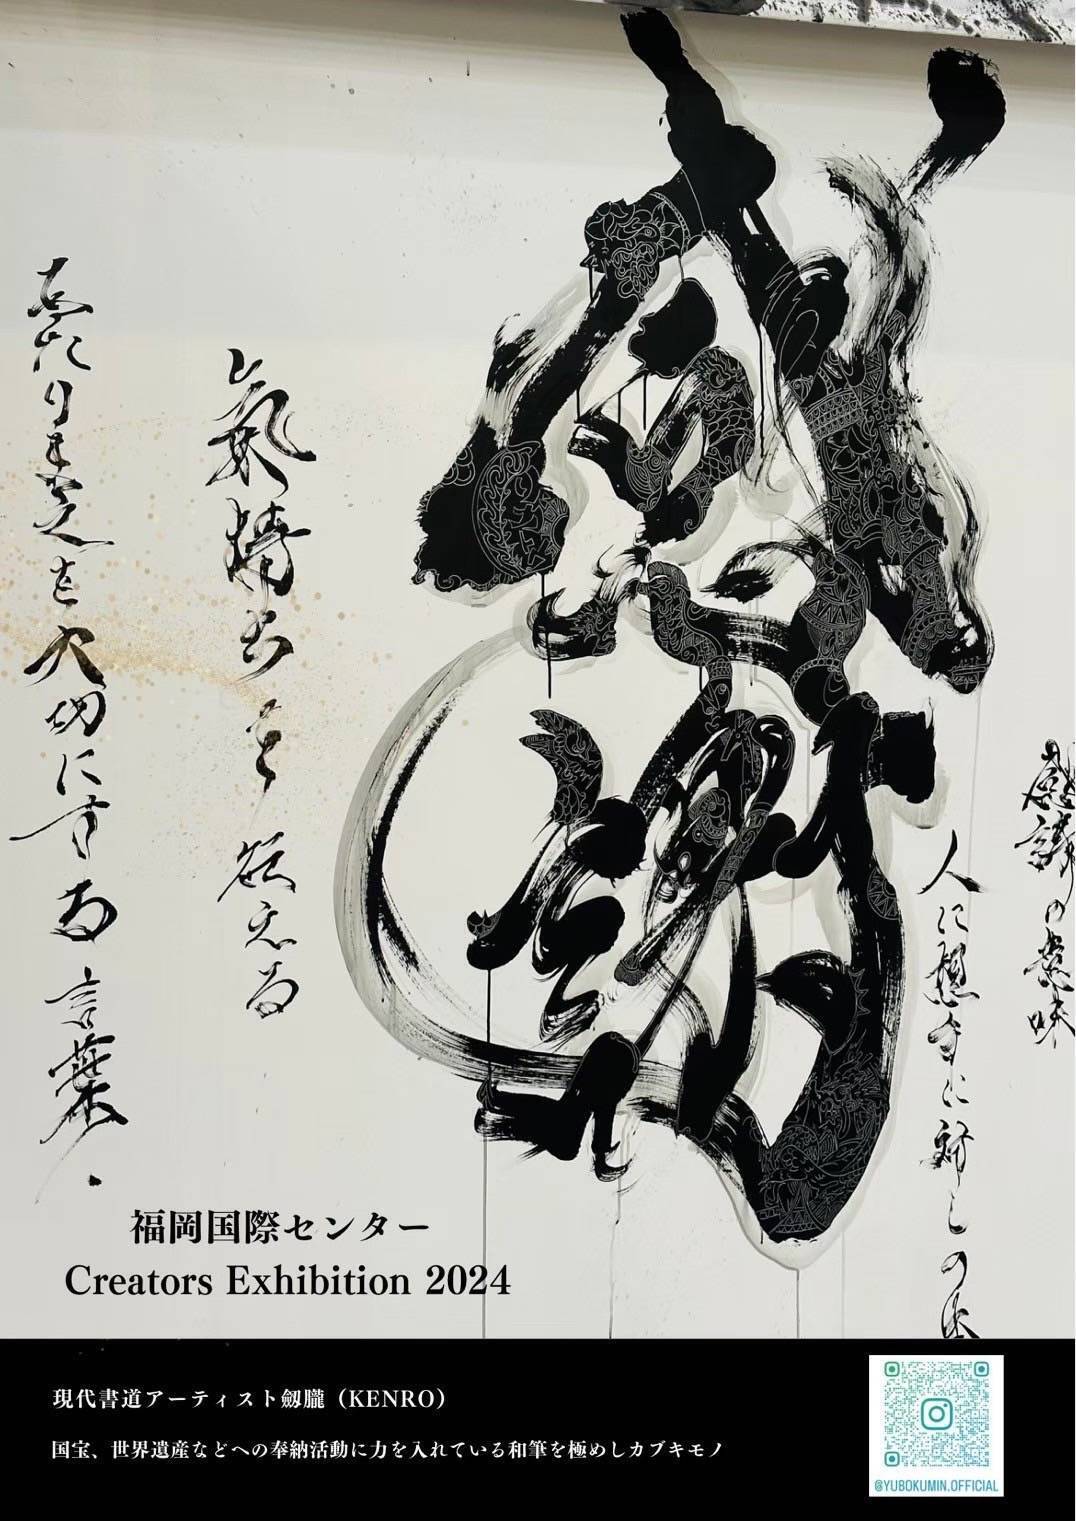 感謝の意味
人に想手に対しの
氣持ちを伝える
あたりまえを大切にする言葉.
福岡国際センター
Creators Exhibition 2024
現代書道アーティスト劔朧（KENRO）
国宝、世界遺産などへの奉納活動に力を入れている和筆を極めしカブキモノ
@YUBOKUMIN.OFFICIAL